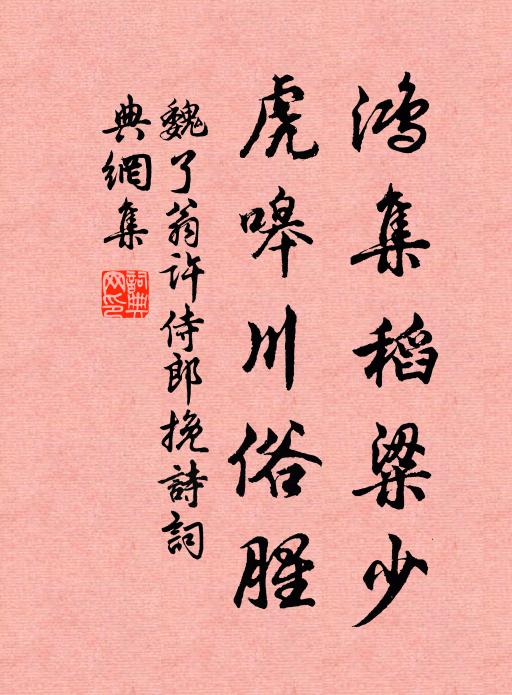 鴻集稻粱少
虎嘷川俗腥
魏了翁许侍郎挽詩詞
典網集
詞典
网印